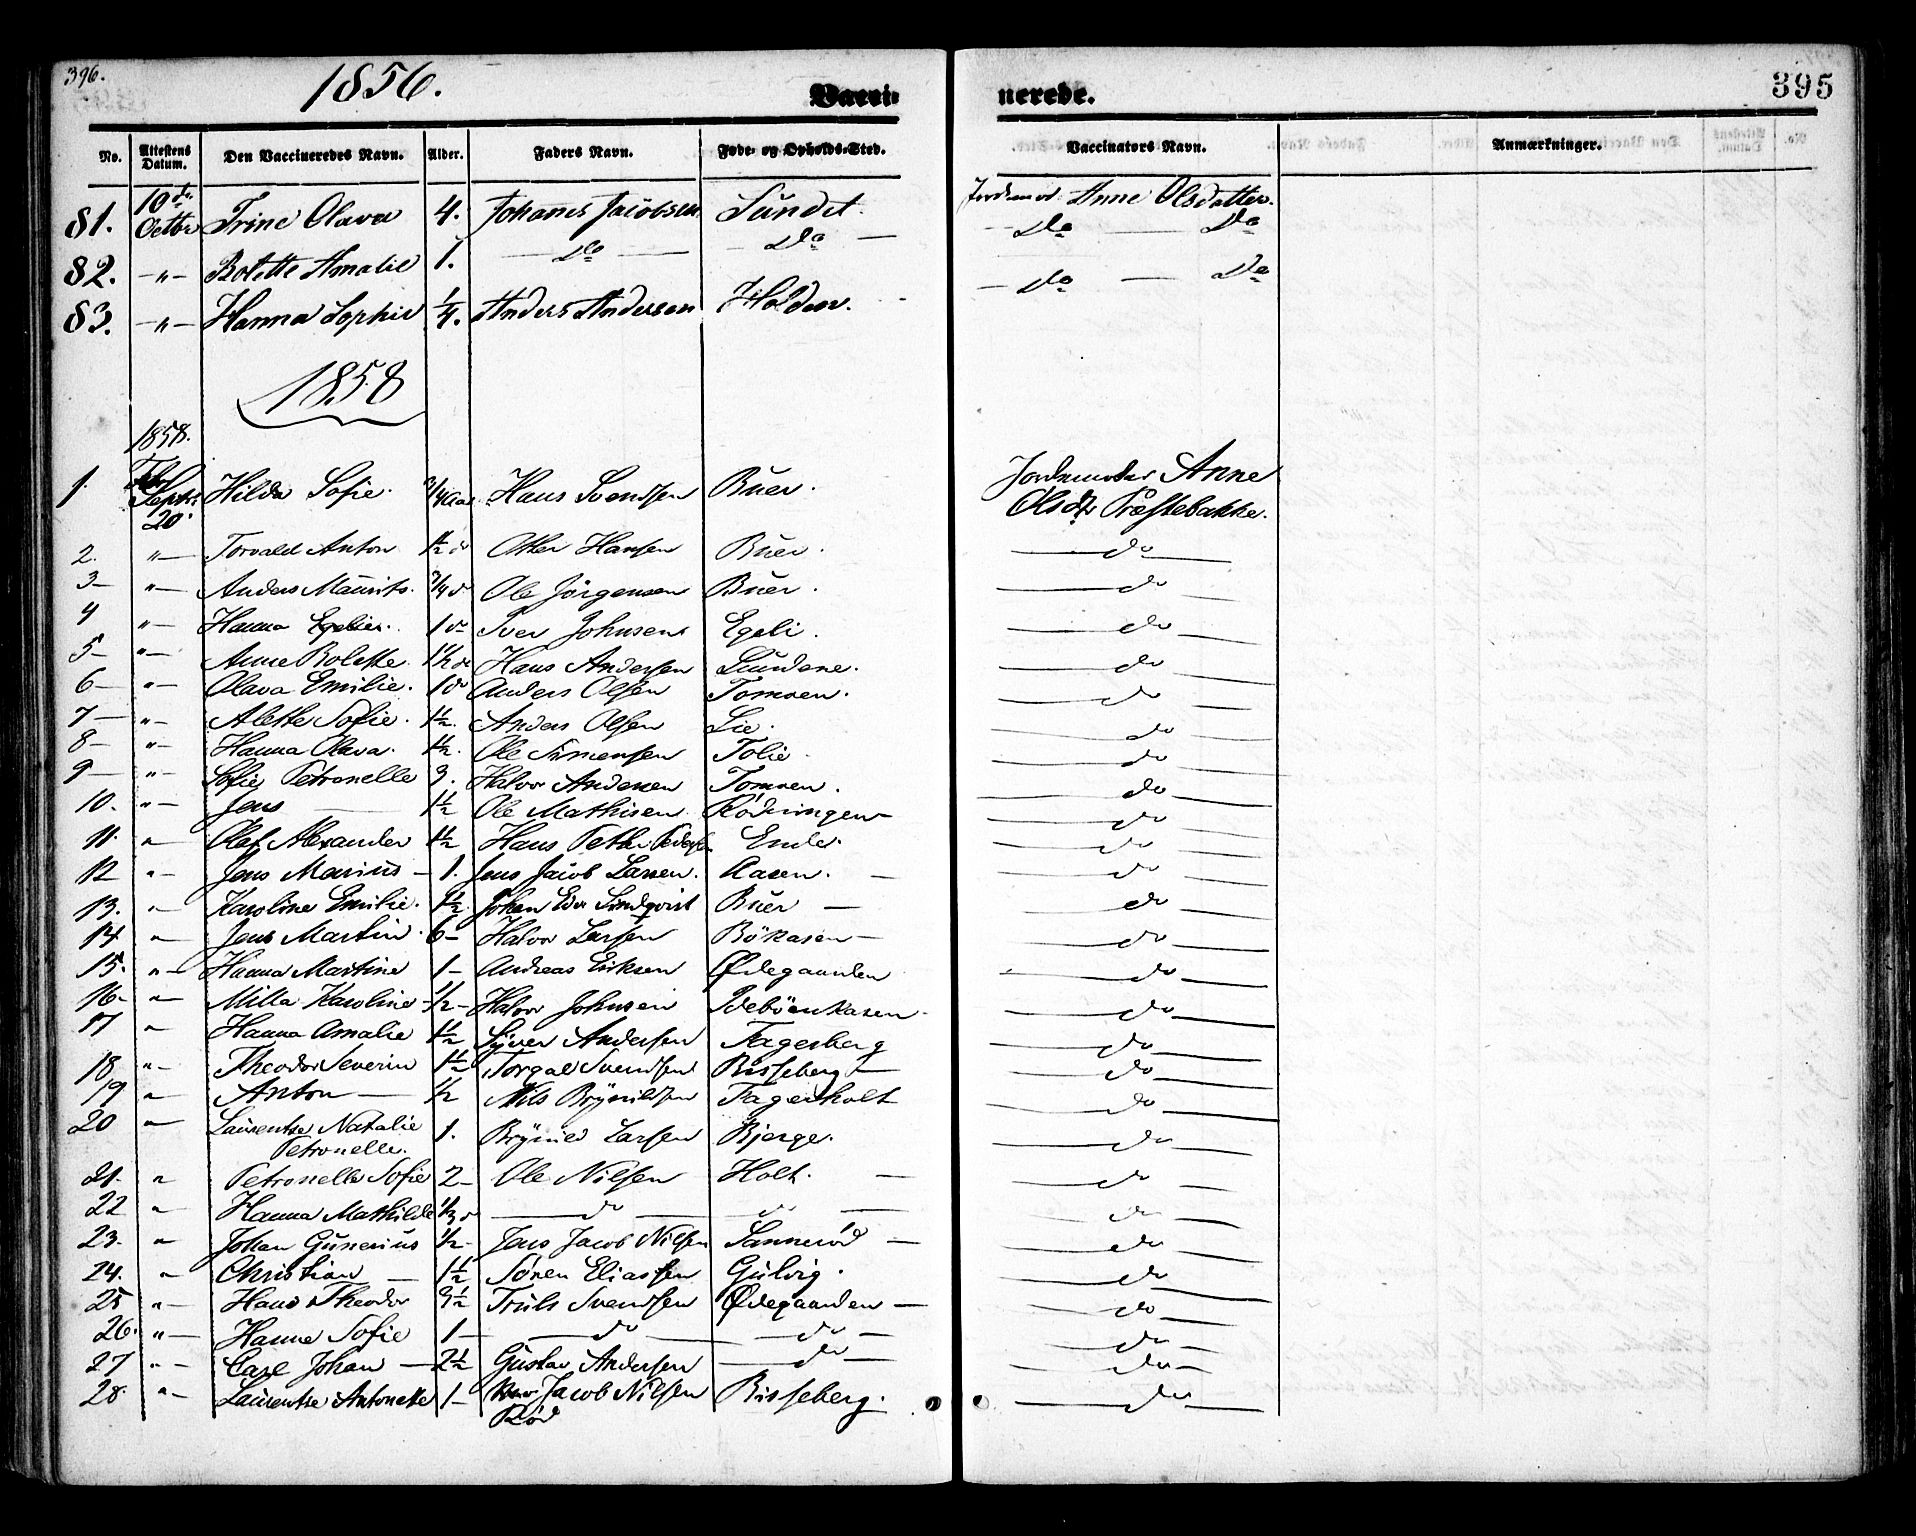 396.
1856.
Vacci-
nerede.
395
No.
Attestens Datum.
Den Vaccineredes Navn.
Alder.
Faders Navn.
Føde- og Opholds-Sted.
Vaccinators Navn.
Anmærkninger.
81. 10de Octbr Trine Olava 4. Johannes Jacobsen Sundet. Jordemod. Anne Olsdatter.
82. -"- Bolette Amalie 1. — Do — — Do — — Do — Do
83. -"- Hanna Sophie 1/4. Anders Andersen Holden. — Do — Do
1858
1858.
1. Septr 20. Hilda Sofie. 3/4 Aar. Hans Svendsen Buer. Jordemoder Anne
Olsdr Præstebakke.
2. "— Torvald Anton 1½ do Hansen Buer. — do —
3— "— Anders Maurits. 3/4 d Ole Jörgensen Buer. — do —
4 "— Hanna 1 do Iver Johnsen Egeli. — do —
5— "— Anne Bolette. 1½ do Hans Andersen — do —
6— "— Olava Emilie. 1 do Anders Olsen Tomsen. — do —
7— "— Alette Sofie. 1½. Anders Olsen Lie. — do —
8— "— Hanna Olava. 1½. Ole Simensen Tolie. — do —
9— "— Sofie Petronelle 3. Halvor Andersen Tomsen. — do —
10. "— Jens — 1½ Ole Mathisen. — do —
11. "— Olaf Alexander 1½ Hans Peter Pedersen — do —
12 "— Jens Marius — 1. Jens Jacob Larsen. Aasen. — — do —
13. "— Karoline Emilie. Johan Lindqvist Buer — — do —
14 "— Jens Martin. 6— Halvor Larsen Bökasen — — do —
15. "— Hanna Martine 1— Andreas Eriksen Ødegaarden — do —
16— "— Milla Karoline — ½— Halvor Johnsen Ideböenkasen. — do —
17 "— Hanna Amalie 1½ Syver Andersen Fagerberg — do —
18 "— Theodor Severin 1½ Torgal Svendsen Bisseberg — — do —
19 "— Anton — ½ Nils Brynildsen Fagerholt — do —
20 "— Laurentse Natalie
Petronelle. 1. Brynild Larsen Bjerge. — do —
21. " Petronelle Sofie 2— Ole Nilsen Holt. — — do —
22 " Hanna Mathilde — do — — do — — do —
23. " Johan Gunerius ½— Jens Jacob Nilsen Sannerød — — do —
24. "— Christian — 1½ Sören Eliassen Gulvig. — do —
25 "— Hans Theodor 3½ Truls Svendsen Ødegaarden — — do —
26. "— Hanne Sofie 1— — do — — do — — do —
27 "— Carl Johan — 2½ Gustav Andersen — do — — do —
28. "— Laurentse Antonette 1— Jacob Nilsen Bisseberg. — do —
Röd